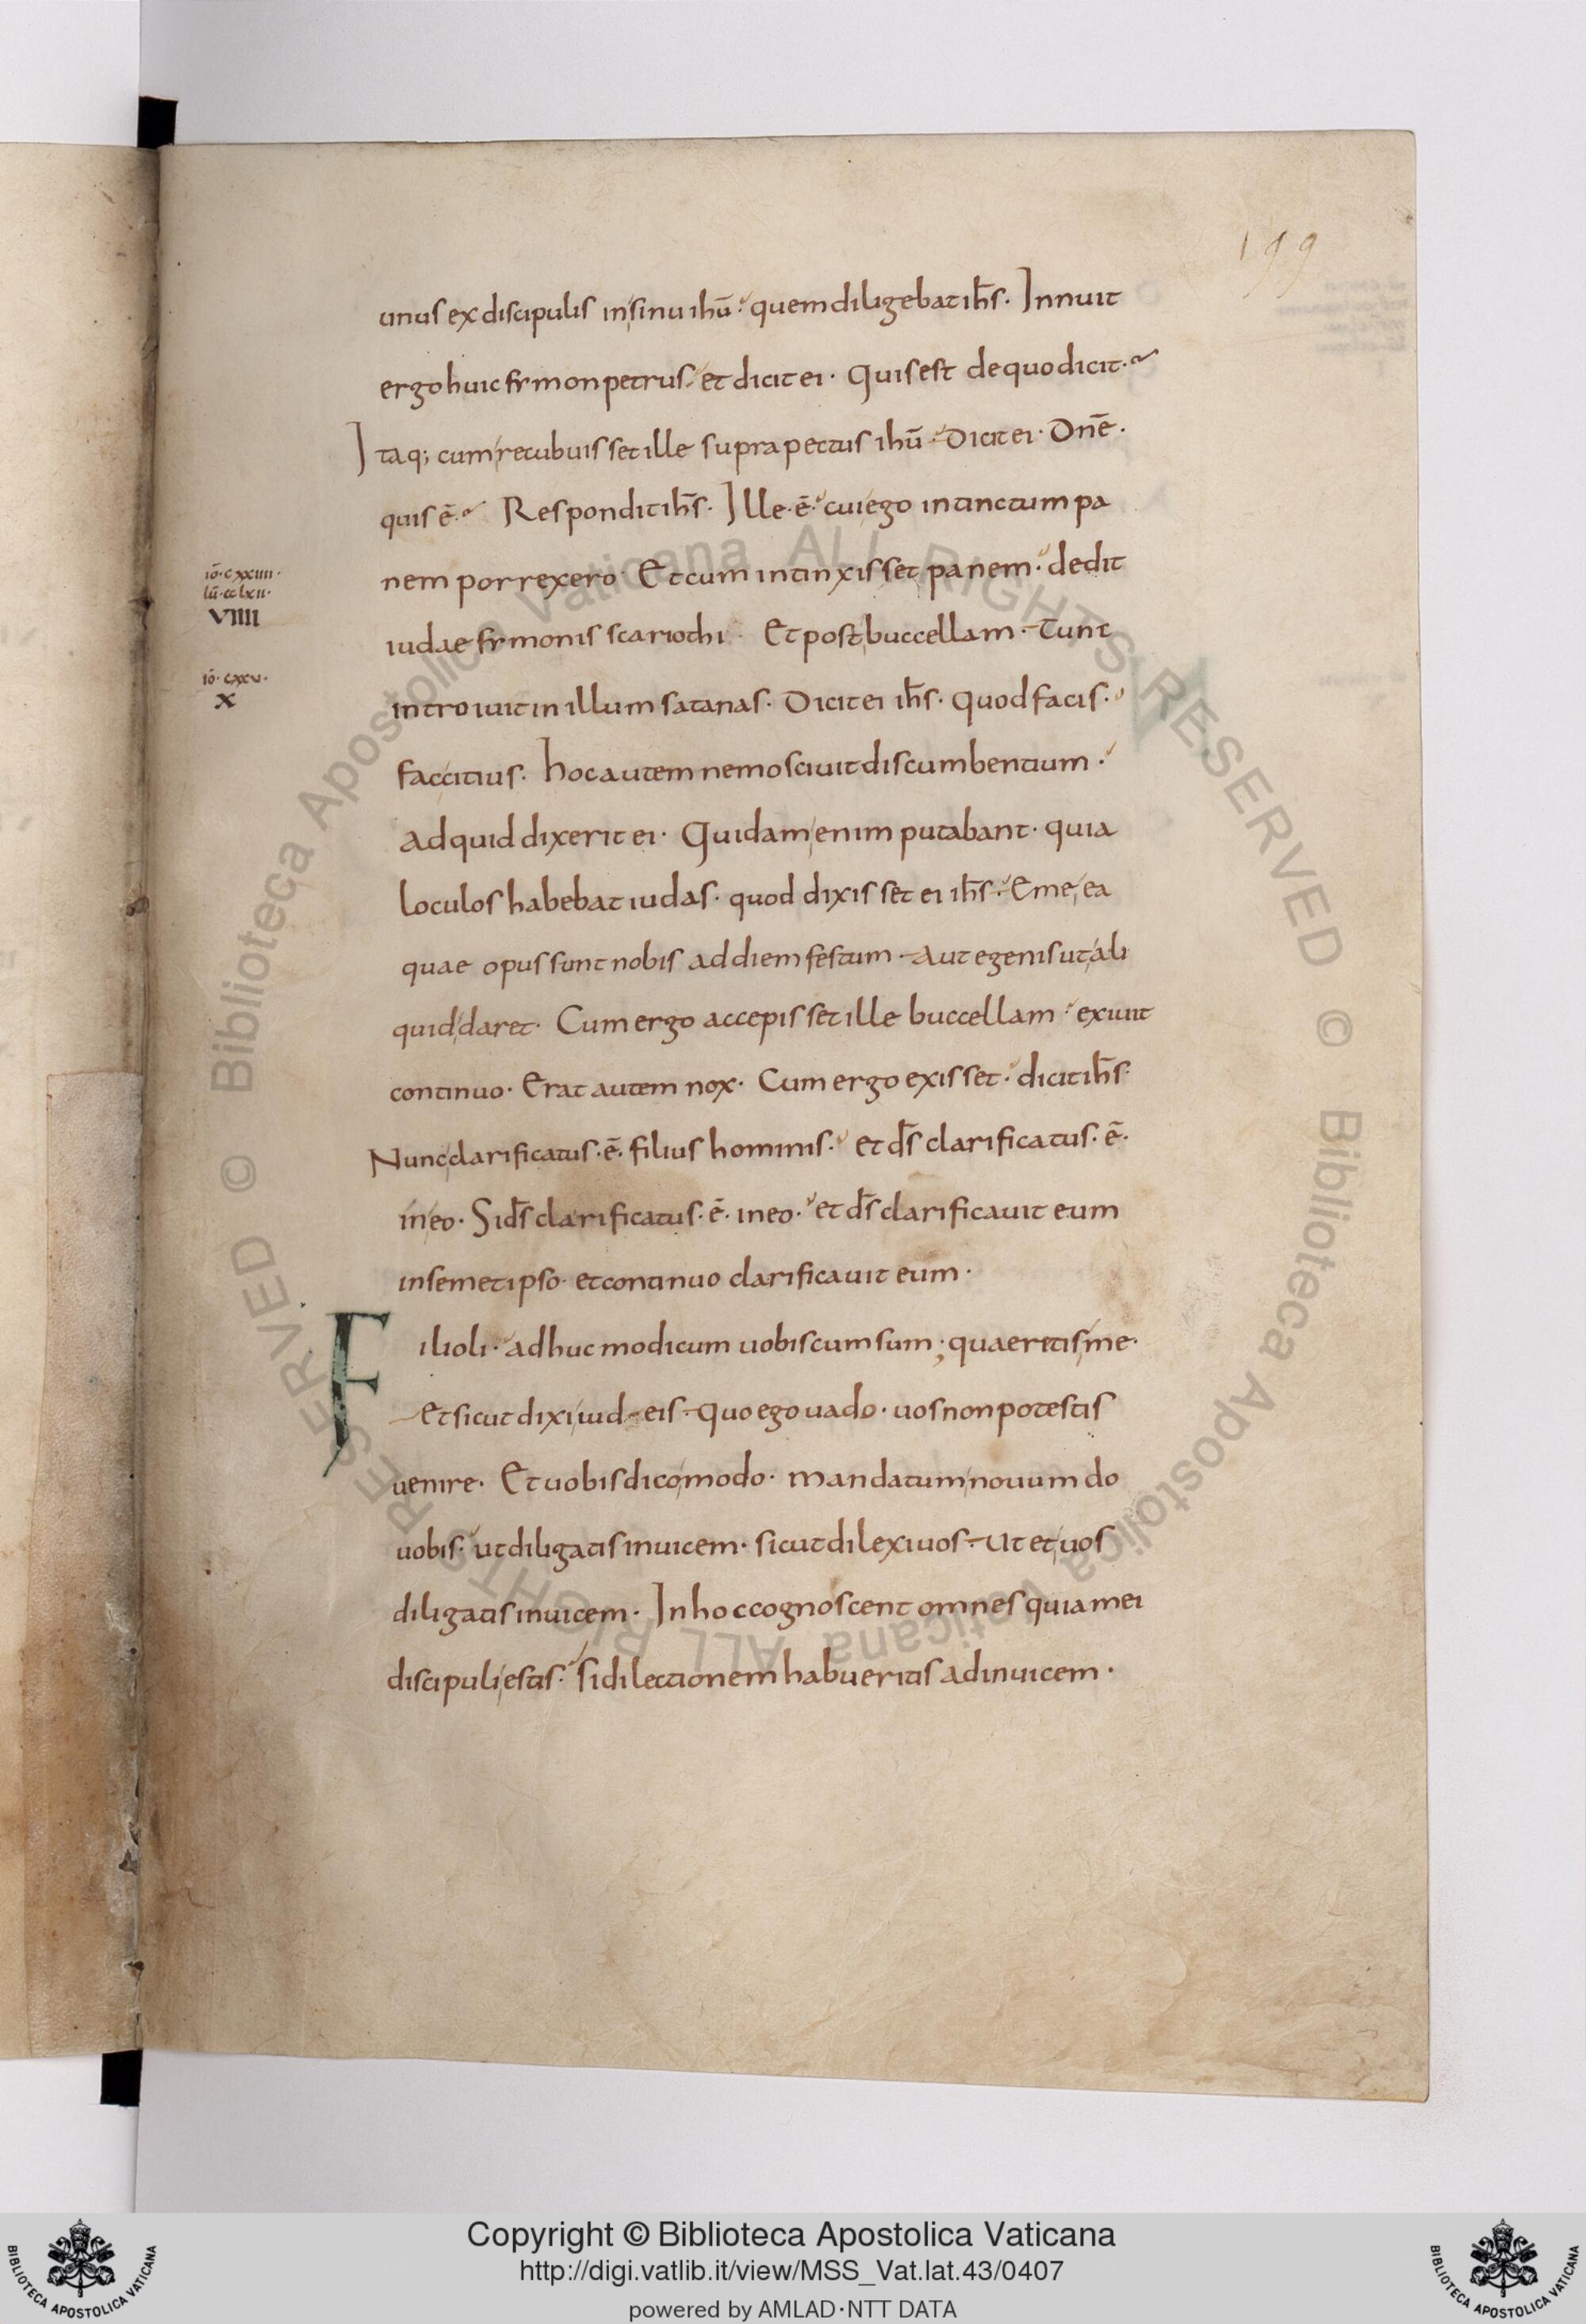 199
unus ex discipulis in sinu ihū · quem diligebat ih̄s · Innuit
ergo huic simon petrus · et dicit ei · Quis est de quo dicit ·
Itaq; cum recubuisset ille supra pectus ihū · Dicit ei · Dn̄e ·
quis ē · Respondit ih̄s · Ille · ē · cui ego intinctum pa
nem porrexero · Et cum intinxisset panem · dedit
iō · cxxiiii ·
lū · cclxii ·
VIIII
iudae simonis scariothi · Et post buccellam · Tunc
iō · cxxv ·
X
introiuit in illum satanas · Dicit ei ih̄s · Quod facis ·
fac citius · hoc autem nemo sciuit discumbentium ·
ad quid dixerit ei · Quidam enim putabant · quia
loculos habebat iudas · quod dixisset ei ih̄s · Eme ea
quae opus sunt nobis ad diem festum · Aut egenis ut ali
quid daret · Cum ergo accepisset ille buccellam · exiuit
continuo · Erat autem nox · Cum ergo exisset · dicit ih̄s ·
Nunc clarificatus · ē · filius hominis · et d̄s clarificatus · ē ·
in eo · Si d̄s clarificatus · ē · in eo · et d̄s clarificauit eum
in semetipso · et continuo clarificauit eum ·
Filioli · adhuc modicum uobiscum sum ; quaeretis me ·
Et sicut dixi iudeis · Quo ego uado · uos non potestis
uenire · Et uobis dico modo · mandatum nouum do
uobis · ut diligatis inuicem · sicut dilexi uos · Ut et uos
diligatis inuicem · In hoc cognoscent omnes quia mei
discipuli estis · si dilectionem habueritis adinuicem ·
© Biblioteca Apostolica Vaticana ALL RIGHTS RESERVED © Biblioteca Apostolica Vaticana ALL RIGHTS RESERVED
Copyright © Biblioteca Apostolica Vaticana
http://digi.vatlib.it/view/MSS_Vat.lat.43/0407
powered by AMLAD·NTT DATA
BIBLIOTECA APOSTOLICA VATICANA
BIBLIOTECA APOSTOLICA VATICANA